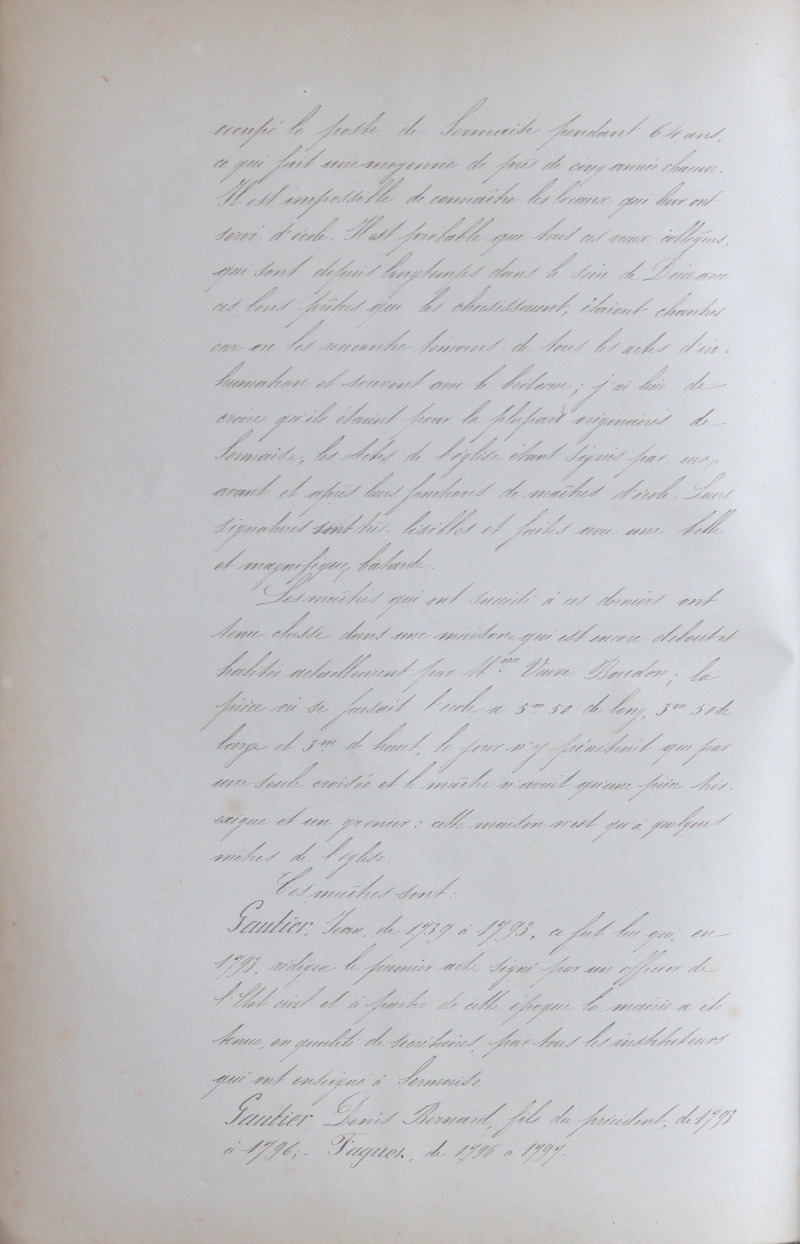 occupé le poste de Sermaise pendant 64 ans,
ce qui fait une moyenne de près de cinq année chacun.
Il est impossible de connaître les locaux qui leur ont
servi d'école. Il est probable que tous ces vieux collègues,
qui sont depuis longtemps dans le sein de Dieu avec
ces bons prêtres qui les choisissaient, étaient chantres
car on les rencontre témoins de tous les actes d'in-
humation et souvent avec le bedeau; j'ai lieu de
croire qu'ils étaient pour la plupart originaires de
Sermaise, les Actes de l'église étant signés par eux,
avant et après leurs fonctions de maîtres d'école. Leurs
signatures sont très lisibles et faites avec une belle
et magnifique bâtarde.
Les maîtres qui ont succédé à ces derniers ont
tenu classe dans une maison qui est encore debout et
habitée actuellement par Mme Veuve Bourdon; la
pièce où se faisait l'école a 5m 50 de long, 3m 50 de
large et 3m de haut, le jour n'y pénétrait que par
une seule croisée et le maître n'avait qu'une pièce très
exigue et un grenier: cette maison n'est qu'à quelques
mètres de l'église.
Ces maîtres sont:
Gautier, Jean, de 1739 à 1793, ce fut lui qui, en
1793, rédigea le premier acte signé par un officier de
l'Etat civil et à partir de cette époque la mairie a été
tenue, en qualité de secrétaires, par tous les instituteurs
qui ont enseigné à Sermaise.
Gautier, Denis Bernard, fils du précédent, de 1793
à 1796;- Faguer, de 1796 à 1797.